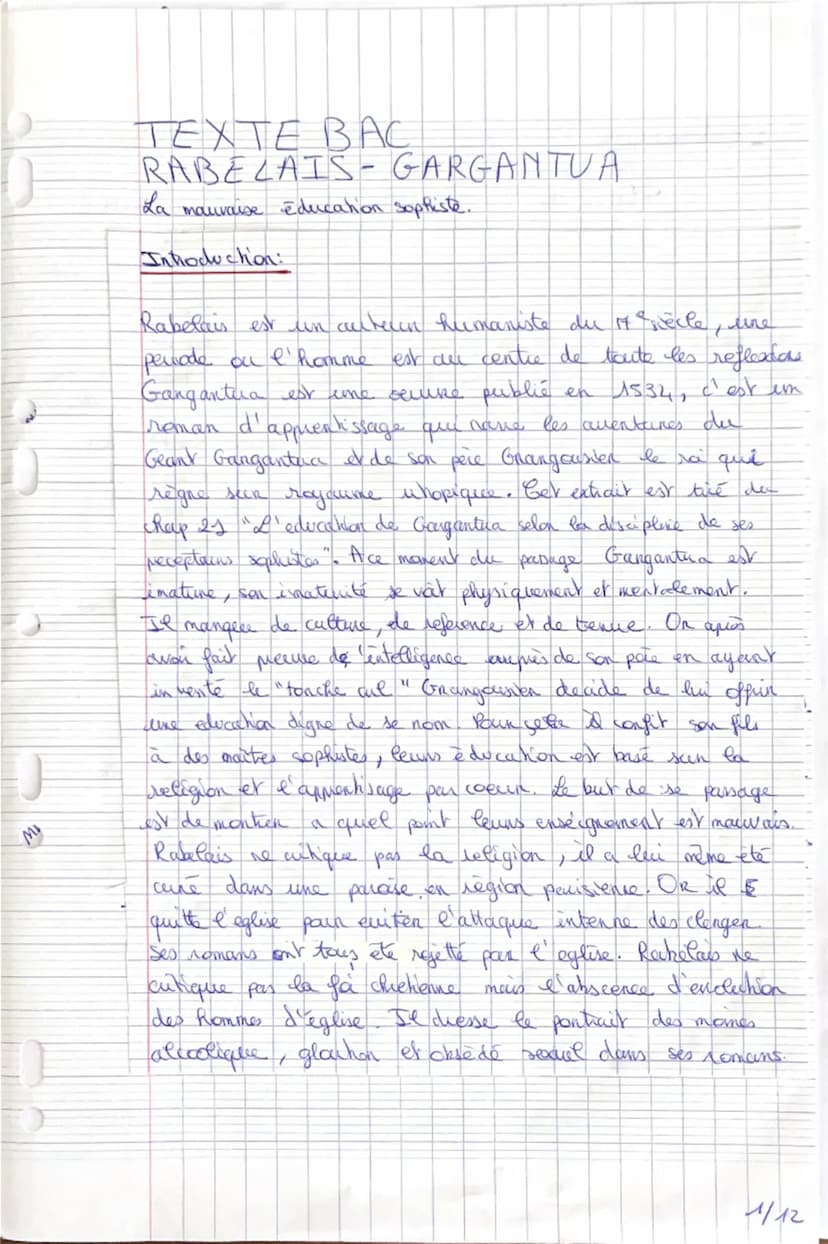 TEXTE BAC
RABELAIS - GARGANTUA
La mauvaise éducation sophiste.
Introduction:
Rabelais est un auteur humaniste du 17e siècle, une
periode ou l'homme est au centre de toute les reflexions
Gargantua est une oeuvre publié en 1534, c'est un
roman d'apprentissage qui narre les aventures du
Geant Gargantua et de son père Grangousier le roi qui
règne sur royaume uhopique. Cet extrait est tiré du
chap 21 "L'education de Gargantua selon la discipline de ses
precepteurs sophistes". A ce moment du passage Gargantua est
imature, son imaturité se voit physiquement et mentalement.
Il manque de culture, de reference et de tenue. Or après
avoir fait preuve de l'intelligence auprès de son père en ayant
inventé le "torche cul" Grangousier decide de lui offrir
une education digne de se nom. Pour cela il confit son fils
à des maîtres sophistes, leurs éducation est basé sur la
religion et l'apprentisage par coeur. Le but de se passage
est de montrer a quel point leurs enseignement est mauvais.
Rabelais ne critique pas la religion, il a lui même été
curé dans une paroise en région parisienne. Or il
quitte l'eglise pour eviter l'attaque interne des clerger
Ses romans ont tous été rejetté par l'eglise. Rabelais ne
critique pas la foi chretienne mais l'abscence d'evolution
des hommes d'église. Il dresse le portrait des moines
alcoolique, glouton et obsédé sexuel dans ses romans.
1/12